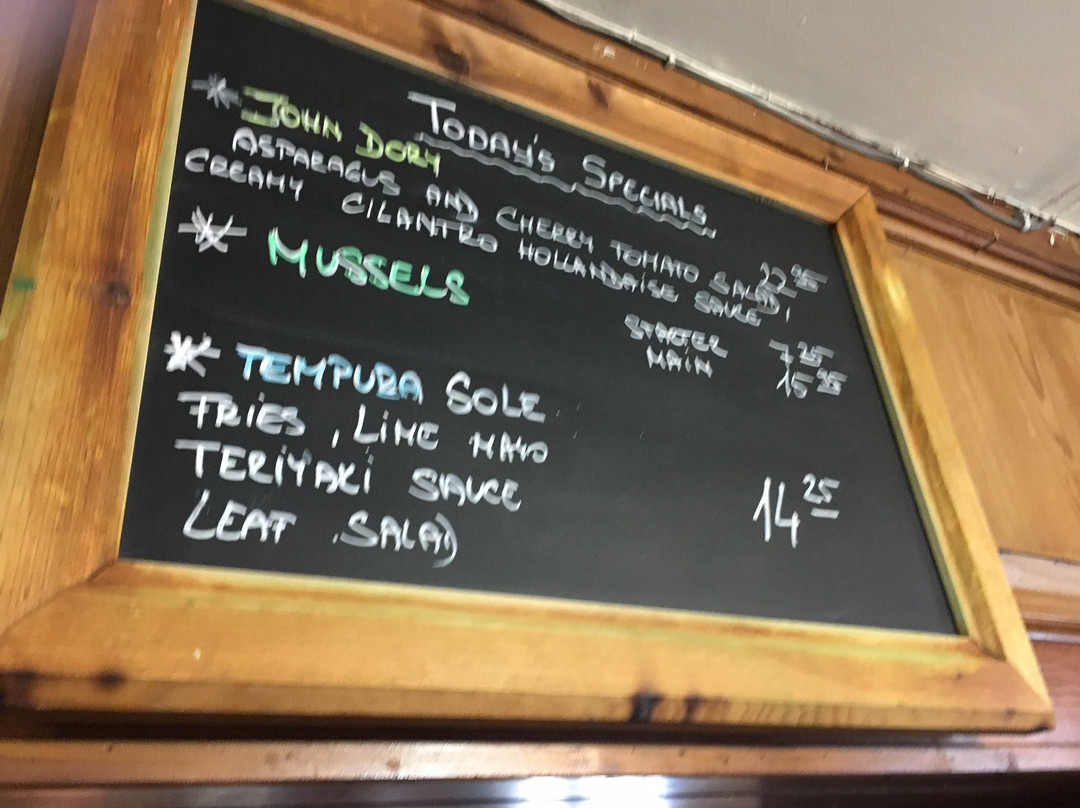 TODAY'S SPECIALS
* JOHN DORY
ASPARAGUS AND CHERRY TOMATO SALAD,
CREAMY CILANTRO HOLLANDAISE SAUCE
* MUSSELS
STARTER 7 25
MAIN 15 25
* TEMPURA SOLE
FRIES, LIME MAYO
TERIYAKI SAUCE
LEAF SALAD 14 25